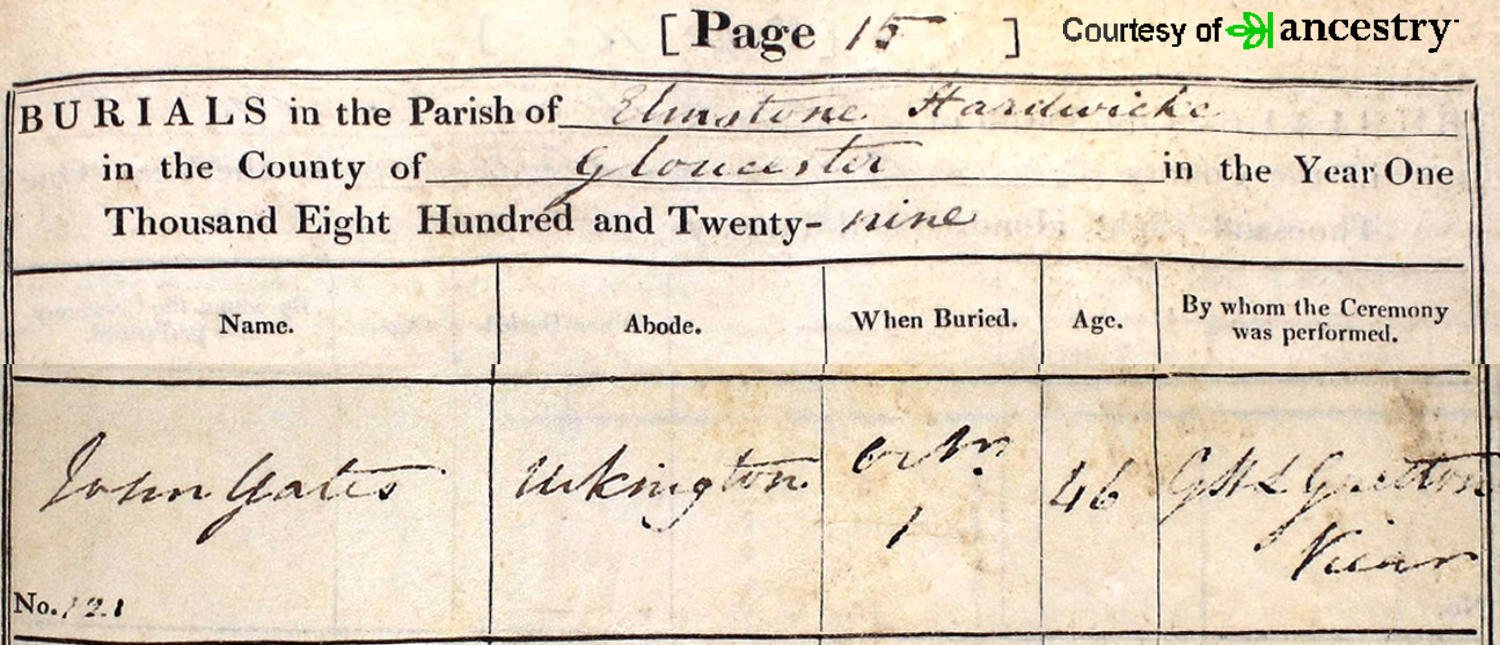 [ Page 15 ]
Courtesy of ancestry
BURIALS in the Parish of Elmstone Hardwicke
in the County of Gloucester in the Year One
Thousand Eight Hundred and Twenty- nine
Name. Abode. When Buried. Age. By whom the Ceremony was performed.
John Yates Uckington 1 46 Gretton
Vicar
No. 121